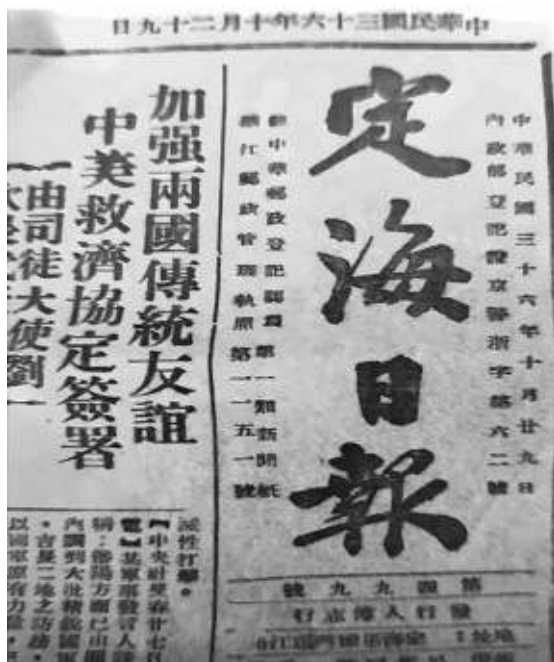 中華民國三十六年十月二十九日
定海日報
中華民國三十六年十月廿九日
內政部登記證京警浙字第六二號
中華郵政登記認為第一類新聞紙
浙江郵政管理局執照第一一五一號
第四九九號
發行人陳志行
加强兩國傳統友誼
中美救濟協定簽署
由司徒大使劉
滅性打擊。
【中央社長春廿七日
電】某軍部發言人談
稱：瀋陽方面已由關
內調到大批精銳國軍
。吉長二地之防務，
以國軍原有力量，